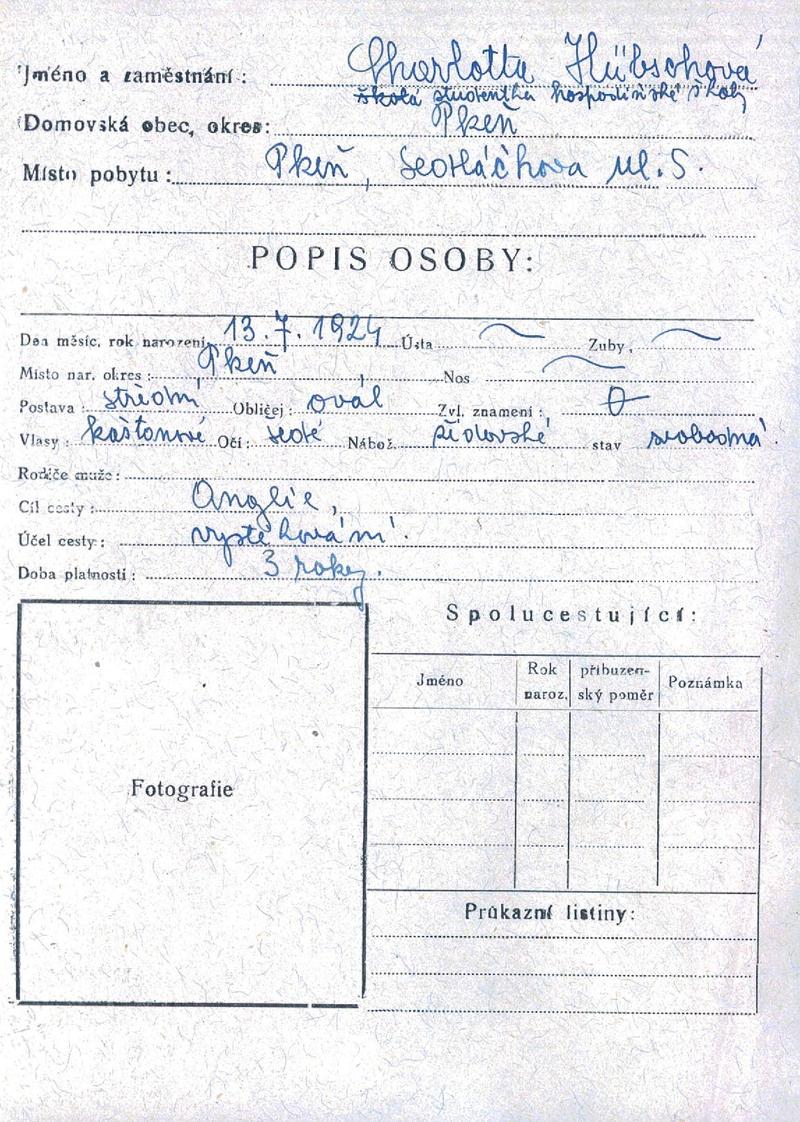 Jméno a zaměstnání: Charlotta Hübschová
studentka hospodyňské školy
Domovská obec, okres: Plzeň
Místo pobytu: Plzeň, Sedláčkova ul. 5.
POPIS OSOBY:
Den měsíc, rok narození 13. 7. 1924 Ústa Zuby
Místo nar. okres: Plzeň Nos
Postava: střední Obličej: ovál Zvl. znamení: 0
Vlasy: kaštanové Oči: šedé Nábož. židovské stav svobodná.
Rodiče muže:
Cíl cesty: Anglie,
Účel cesty: vystěhování.
Doba platnosti: 3 roky.
Spolucestující:
Jméno Rok naroz. příbuzenský poměr Poznámka
Fotografie
Průkazní listiny: